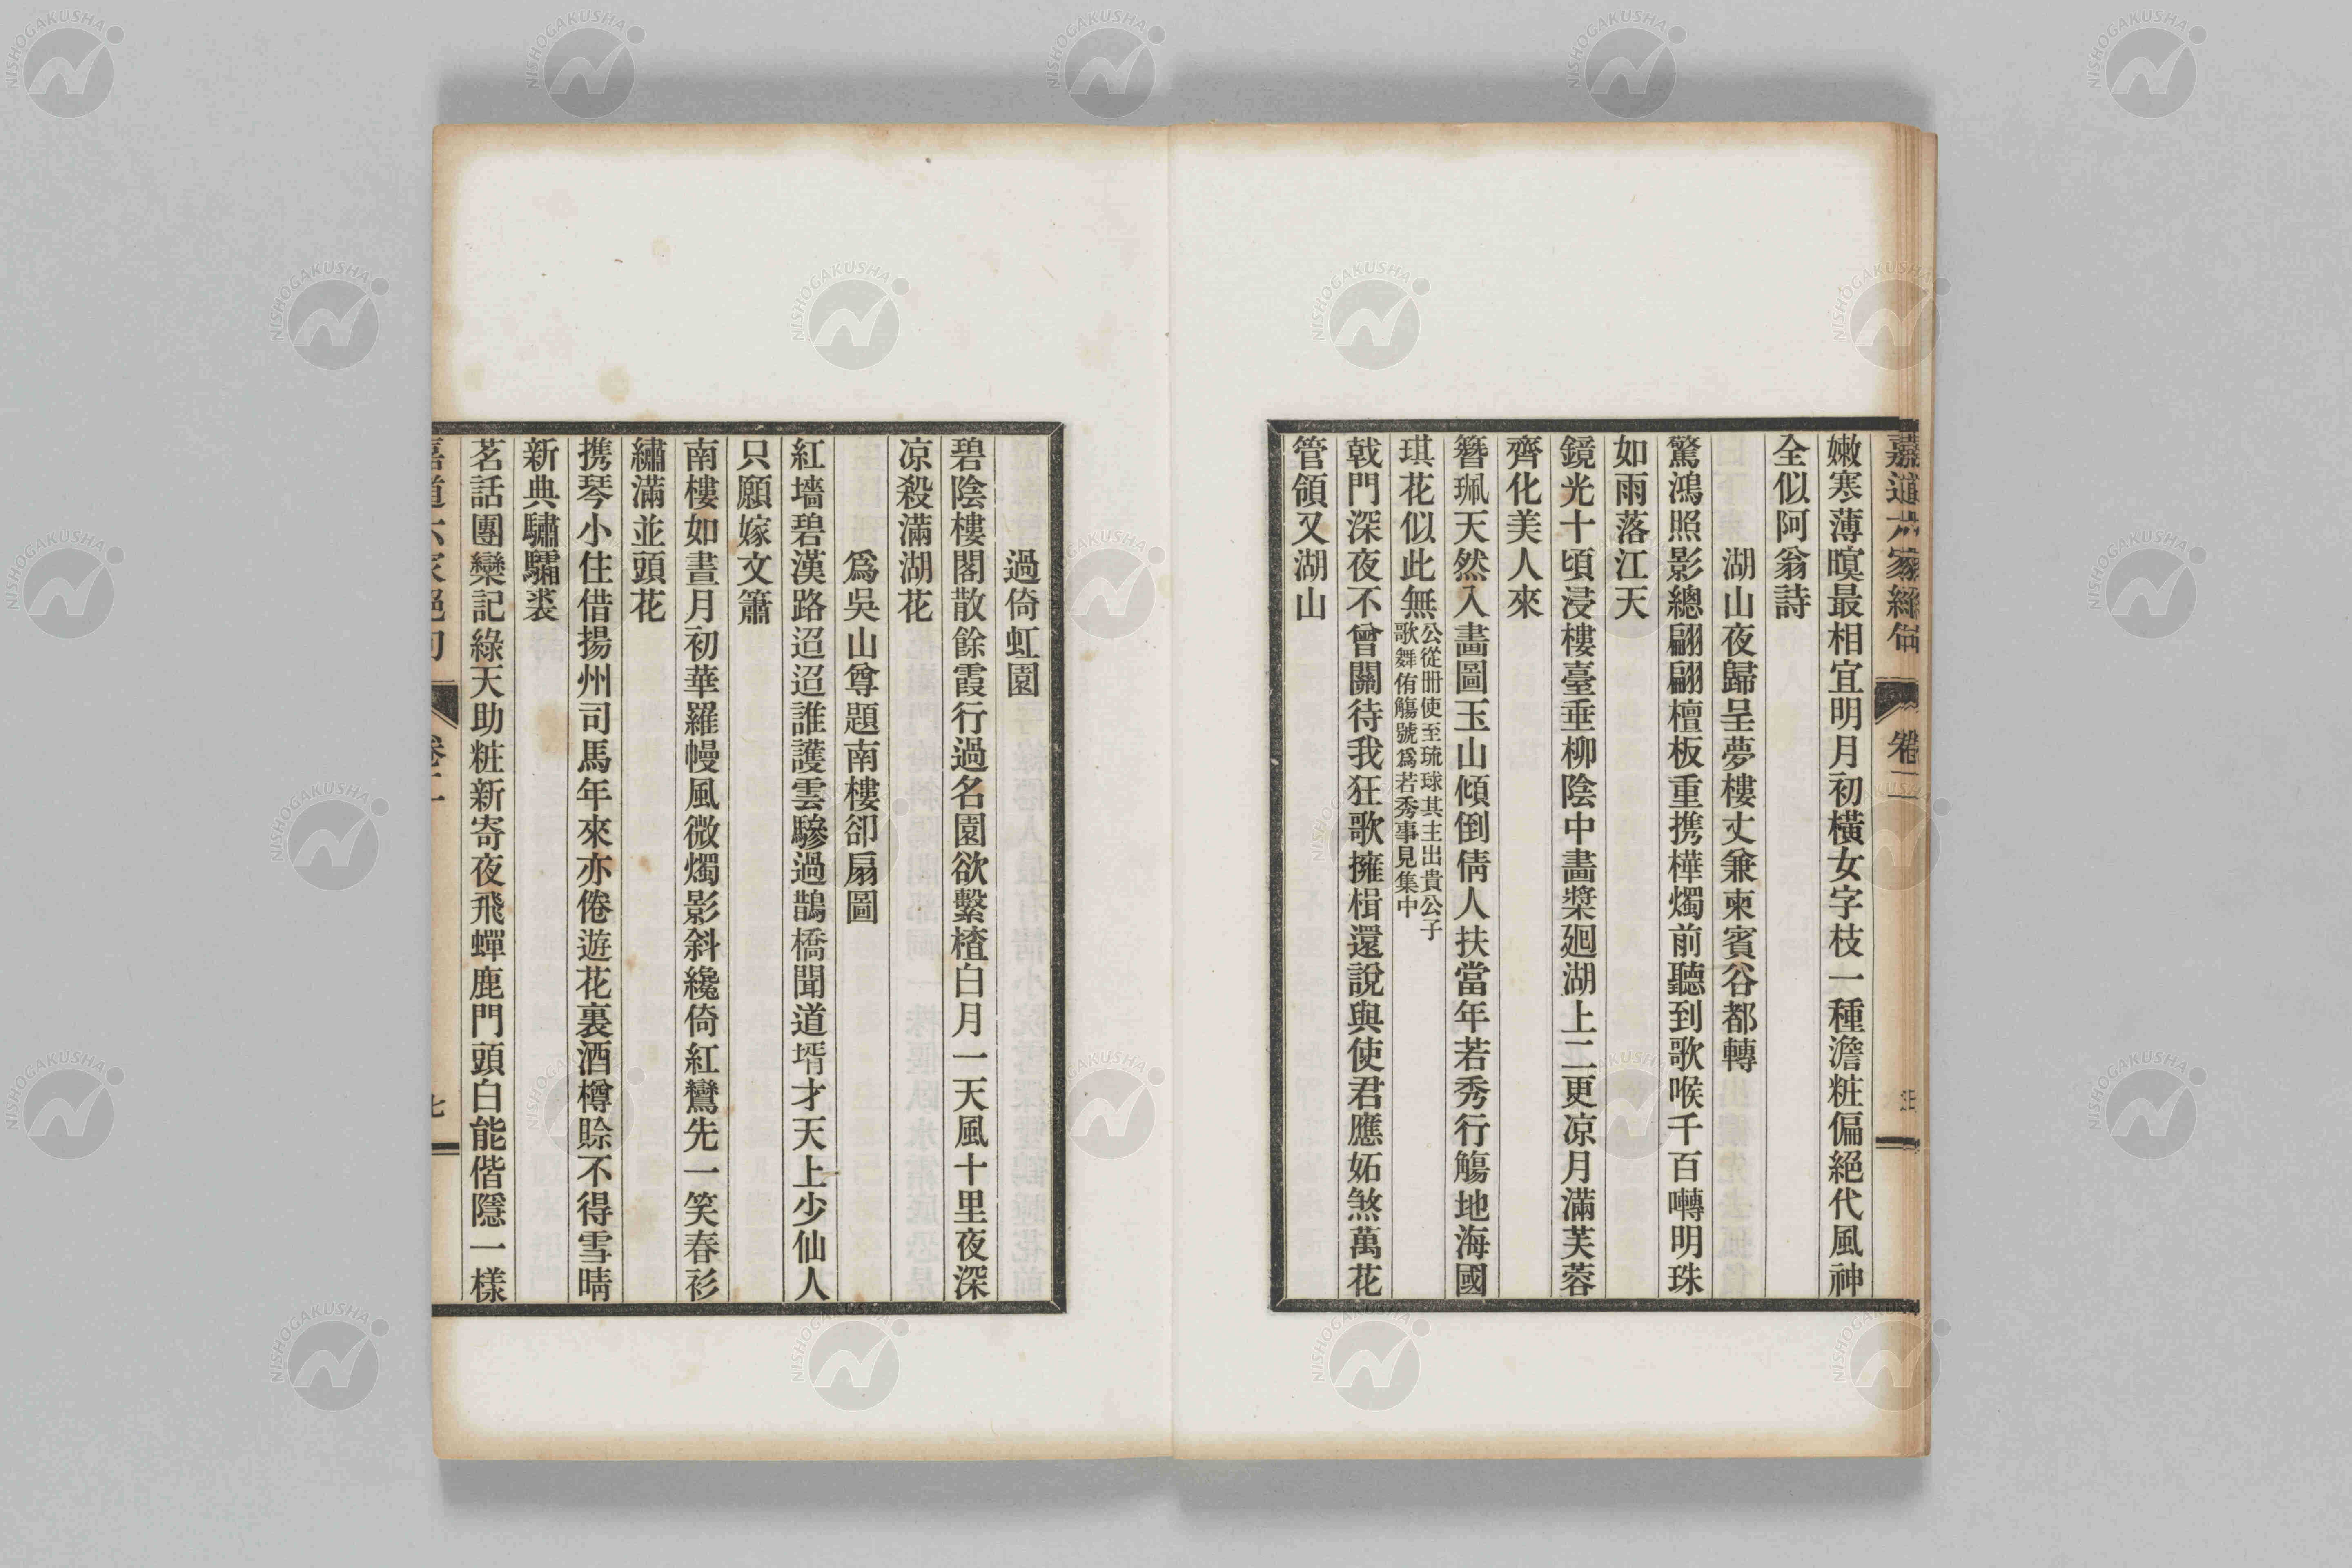 嫩寒薄暝最相宜明月初橫女字枝一種澹粧偏絕代風神
全似阿翁詩
湖山夜歸呈夢樓丈兼柬賓谷都轉
驚鴻照影總翩翩檀板重携樺燭前聽到歌喉千百囀明珠
如雨落江天
鏡光十頃浸樓臺垂柳陰中畫槳廻湖上二更凉月滿芙蓉
齊化美人來
簪珮天然入畫圖玉山傾倒倩人扶當年若秀行觴地海國
琪花似此無公從冊使至琉球其主出貴公子
歌舞侑觴號爲若秀事見集中
戟門深夜不曾關待我狂歌擁楫還說與使君應妬煞萬花
管領又湖山
過倚虹園
碧陰樓閣散餘霞行過名園欲繫楂白月一天風十里夜深
凉殺滿湖花
爲吳山尊題南樓卻扇圖
紅墻碧漢路迢迢誰護雲驂過鵲橋聞道壻才天上少仙人
只願嫁文簫
南樓如晝月初華羅幔風微燭影斜纔倚紅鸞先一笑春衫
繡滿並頭花
携琴小住借揚州司馬年來亦倦遊花裏酒樽賒不得雪晴
新典驌驦裘
茗話團欒記綠天助粧新寄夜飛蟬鹿門頭白能偕隱一樣
NISHOGAKUSHA